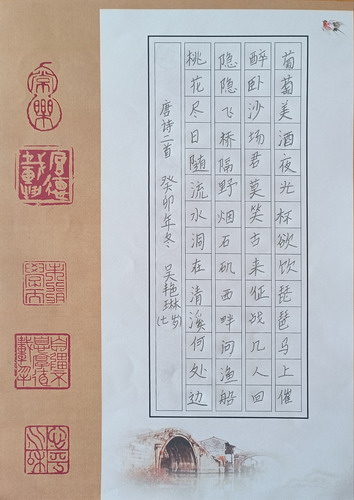 葡萄美酒夜光杯欲饮琵琶马上催
醉卧沙场君莫笑古来征战几人回
隐隐飞桥隔野烟石矶西畔问渔船
桃花尽日随流水洞在清溪何处边
唐诗二首 癸卯年冬 吴艳琳(七岁)
常樂
厚德載物